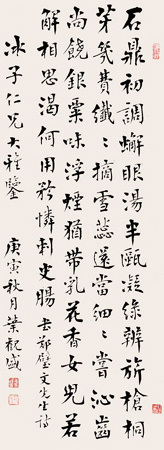 石鼎初調蠏眼湯半甌凝綠辨旂槍桐
芽幾費纖纖摘雪蕊還當細細嘗沁齒
尚饒銀粟味浮煙猶帶乳花香女兒若
解相思渴何用矜憐刺史腸 書鄭璧文先生詩
冰子仁兄大雅鑒 庚寅秋月葉觀盛